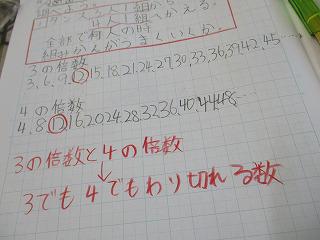 4人1組へかえる。
全部で何人の時
組みかんがつきくいくか。
3の倍数
3,6,9,12,15,18,21,24,27,30,33,36,39,42,45……
4の倍数
4,8,12,16,20,24,28,32,36,40,44,48……
3の倍数と4の倍数
↓
3でも4でもわり切れる数